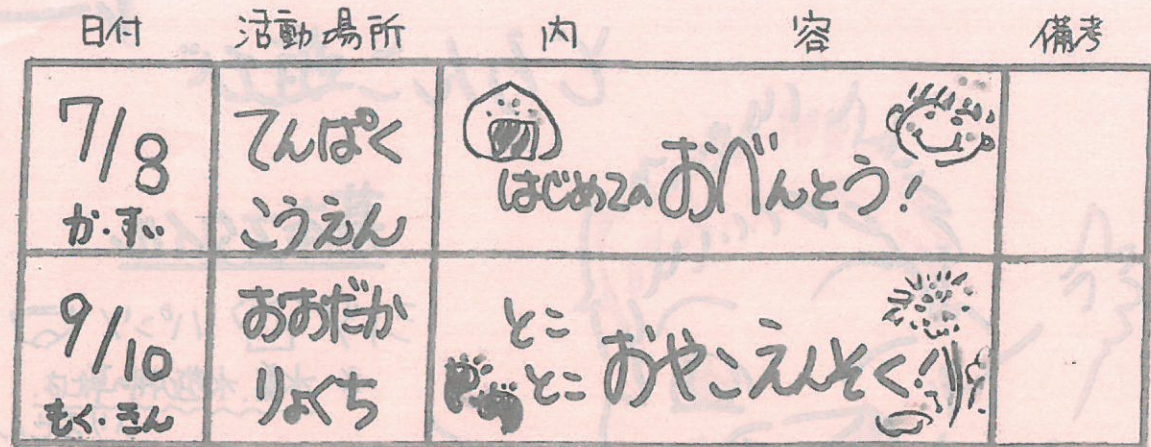 日付 活動場所 内容 備考
7/8
か・すい
てんぱく
こうえん
はじめての おべんとう!
9/10
もく・きん
おおだか
りょくち
とこ
とこ
おやこえんそく!